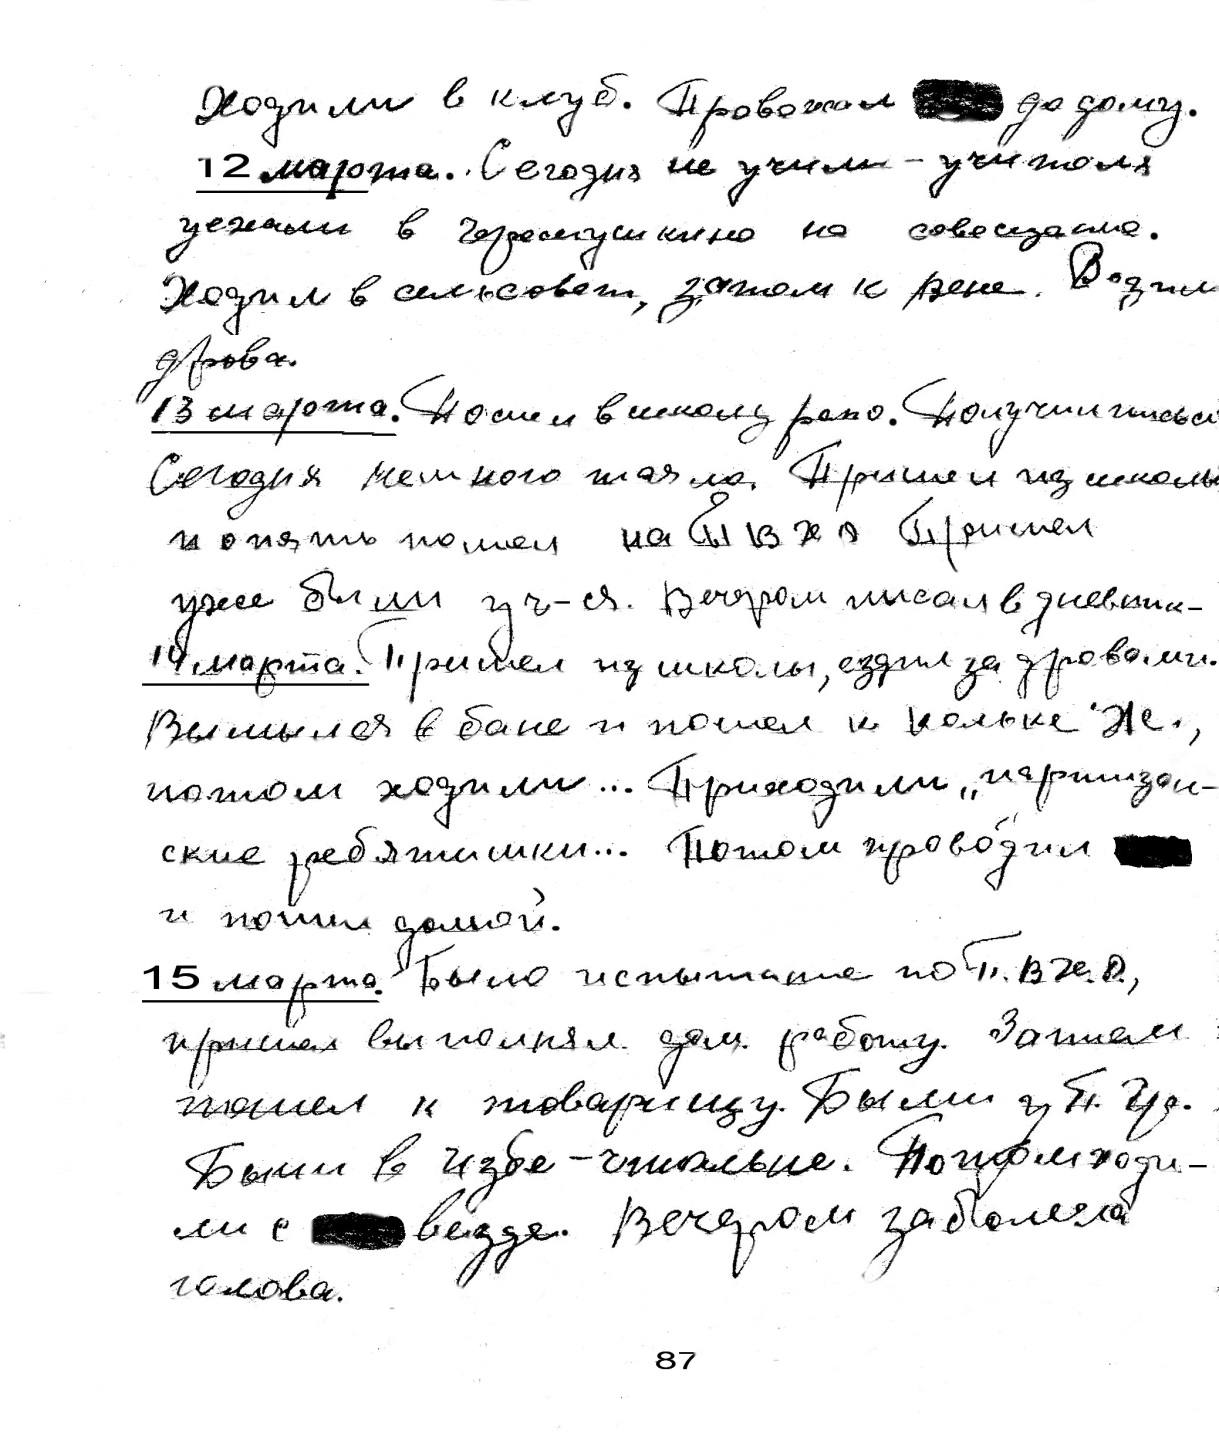 Ходили в клуб. Провожал до дому.
12 марта. Сегодня не учили – учителя
уехали в Черемушкино на совещание.
Ходил в сельсовет, затем к Вене. Возил
дрова.
13 марта. Пошел в школу рано. Получил письмо
Сегодня немного таяло. Пришел из школы
и опять пошел на П В Х О Пришел
уже были уч-ся. Вечером писал в дневник-
14 марта. Пришел из школы, ездил за дровами.
Вымылся в бане и пошел к Кольке Ж.,
потом ходили... Приходили „партизан-
ские ребятишки... Потом проводил
и пошли домой.
15 марта. Было испытание по П.В.Х.О.,
пришел выполнял дом. работу. Затем
пошел к товарищу. Были у П. Гр.
Были в избе-читальне. Потом ходи-
ли с везде. Вечером заболела
голова.
87